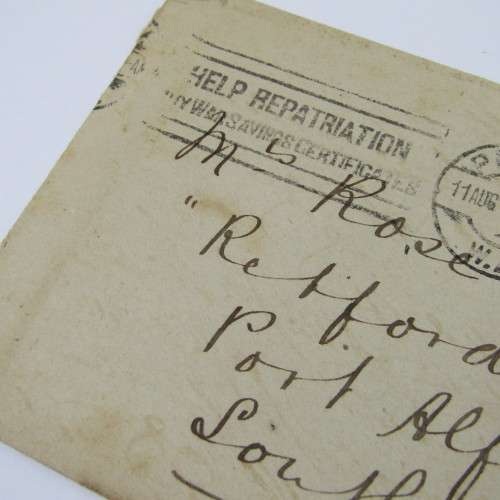 HELP REPATRIATION
BUY WAR SAVINGS CERTIFICATES
11 AUG
W.
Mrs Rose
"Retford
Port Alf
South